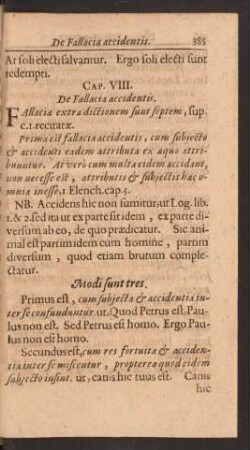 De Fallacia accidentis. 385
At soli electi salvantur. Ergo soli electi sunt
redempti.
CAP. VIII.
De Fallacia accidentis.
Fallaciæ extra dictionem sunt septem, sup.
c.1. recitatæ.
Prima est fallacia accidentis, cum subjecto
& accidenti eadem attributa ex æquo attri-
buuntur. At verò cum multa eidem accidant,
non necesse est, attributis & subjectis hæc o-
mnia inesse, 1 Elench. cap. 5.
NB. Accidens hic non sumitur, ut Log. lib.
1. & 2. sed ita ut ex parte sit idem, ex parte di-
versum ab eo, de quo prædicatur. Sic ani-
mal est partim idem cum homine, partim
diversum, quod etiam brutum comple-
ctatur.
Modi sunt tres.
Primus est, cum subjecta & accidentia in-
ter se confunduntur. ut. Quod Petrus est, Pau-
lus non est. Sed Petrus est homo. Ergo Pau-
lus non est homo.
Secundus est, cum res fortuitæ & acciden-
tia inter se miscentur, propterea quod eidem
subjecto insint. ut; canis hic tuus est. Canis
hic